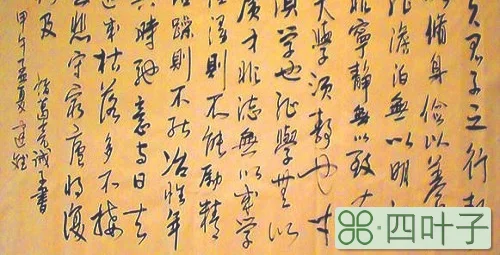 夫君子之行靜
以脩身儉以養
非澹泊無以明
非寧靜無以致
夫學須靜也才
須學也非學無以
廣才非志無以成學
則不能勵精
躁則不能冶性年
與時馳意與日去
遂成枯落多不接
世悲守窮廬將復
何及 諸葛亮誡子書
甲午孟夏
四叶子